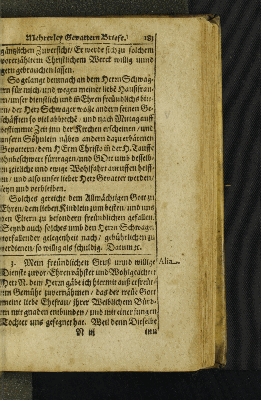 Mehrerley Gevattern Briefe. 183
gäntzlichen Zuversicht / Er werde sich zu solchem
vorerzähltem Christlichem Werck willig unnd
gern gebrauchen lassen.
So gelangt demnach an dem Herrn Schwag-
für mich / und wegen meiner lieb Haußfraw
unser dienstlich und Ehren freündlichs bit-
der Herr Schwager wolle andern seinen Ge-
schäfften so viel abbrechē / und nach Mittag auff
bestimmte Zeit inn der Kirchen erscheinen / und
unsern Söhnlein neben andern dazu erbättnen
Gevattern / dem HErrn Christo der H. Tauffe
fürtragen / und GOtt umb desselb-
zeitliche und ewige Wohlfahrt anruffen helff-
und also unser lieber Herr Gevatter werden /
seyn und verbleiben.
Solches gereicht dem Allmächtigen Gott zu
Ehren / dem lieben Kindlein zum besten / und uns
Eltern zu besondern freündlichen gefallen.
Seynd auch solches umb den Herrn Schwage-
vorfallender gelegenheit nach / gebührlichen zu
verdienen / so willig als schuldig. Datum
3. Mein freündlichen Gruß unnd willige
Dienste zuvor / Ehrenvähster und Wohlgeachter
Herr N. dem Herrn gäbe ich hiermit auß erfreü-
Gemüht zuvernähmen / daß der treüe Gott
meine liebe Ehefrau / ihrer Weiblichem Bürd-
gnaden entbunden / und mit einer jungen
Tochter uns gesegnet hat. Weil denn Dieselbe
N iij